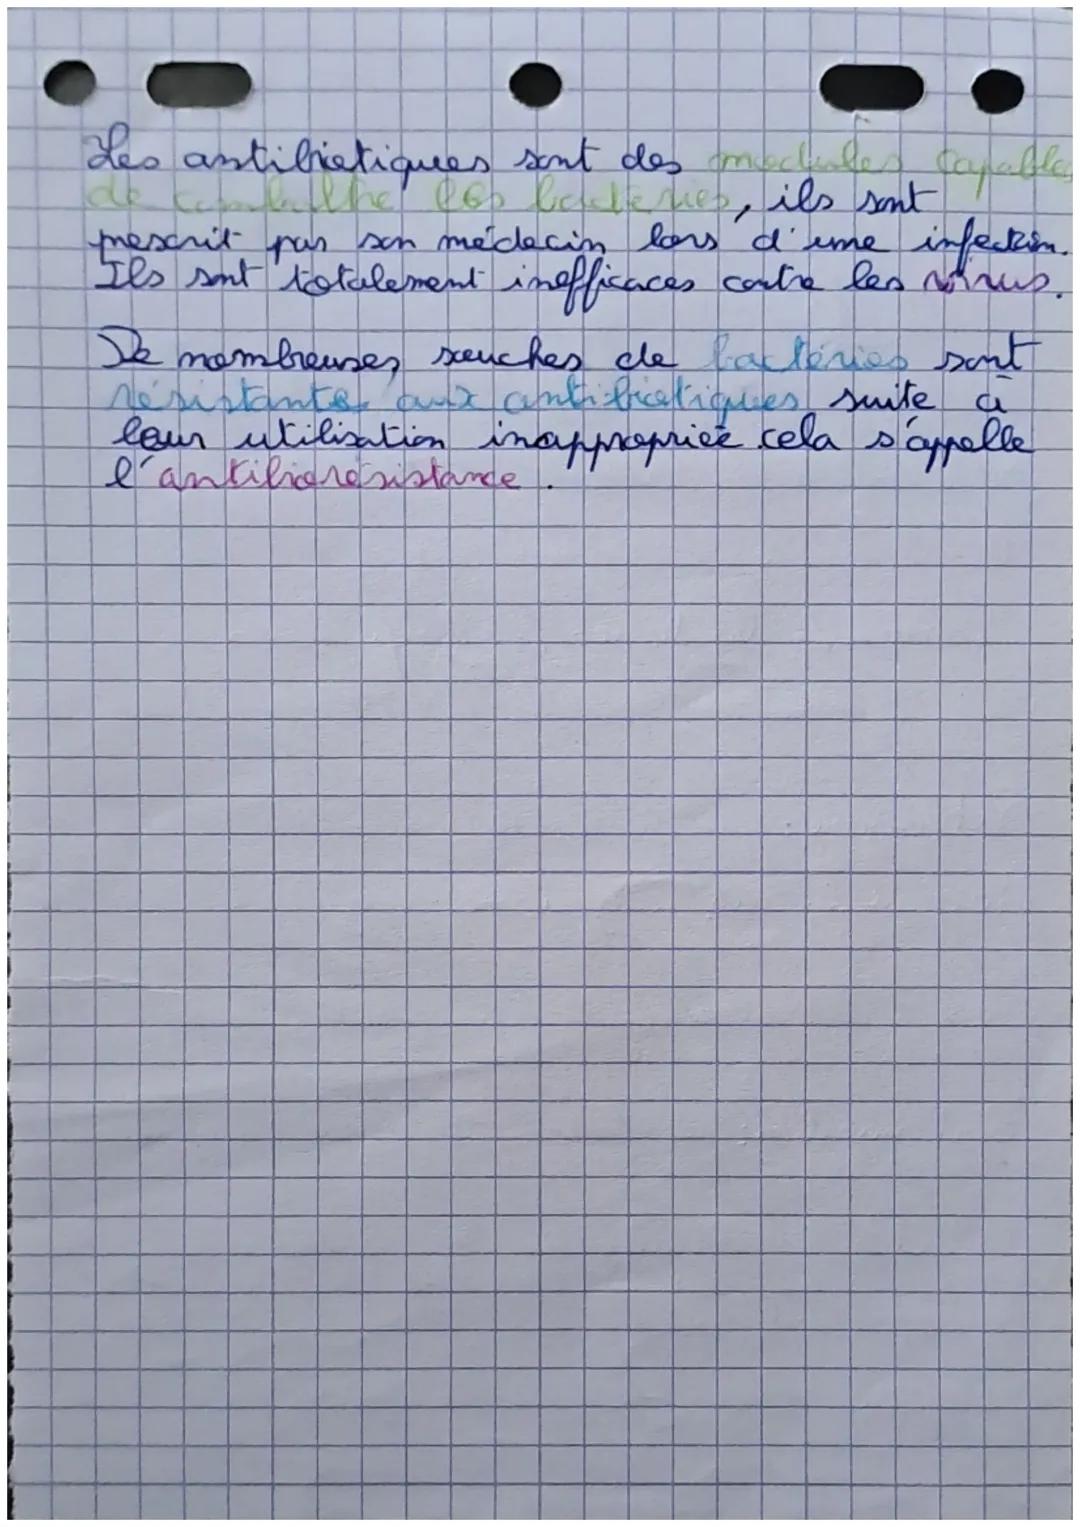 Les antibiotiques sont des modules capables
de combatthe les bactéries, ils sont
prescrit par son médecin lors d'une infection.
Ils sont totalement inefficaces contre les virus.
De nombreuses souches de bactéries sont
résistantes aux antibiotiques suite à
leur utilisation inappropriée cela s'appelle
l'antibiorésistance.